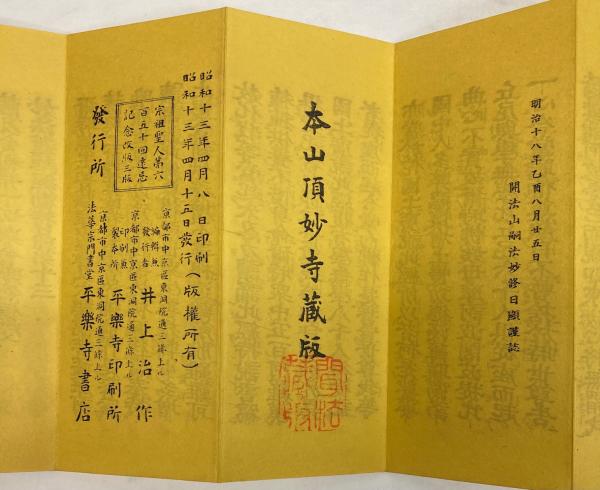 明治十八年乙酉八月廿五日
開法山嗣法妙修日顯謹誌
本山頂妙寺藏版
昭和十三年四月八日印刷
昭和十三年四月十五日發行(版權所有)
宗祖聖人第六
百五十回遠忌
記念改版三版
京都市中京區東洞院通三條上ル
編輯兼
發行者
井上治作
京都市中京區東洞院通三條上ル
印刷兼
製本所
平樂寺印刷所
發行所
京都市中京區東洞院通三條上ル
法華宗門書堂
平樂寺書店